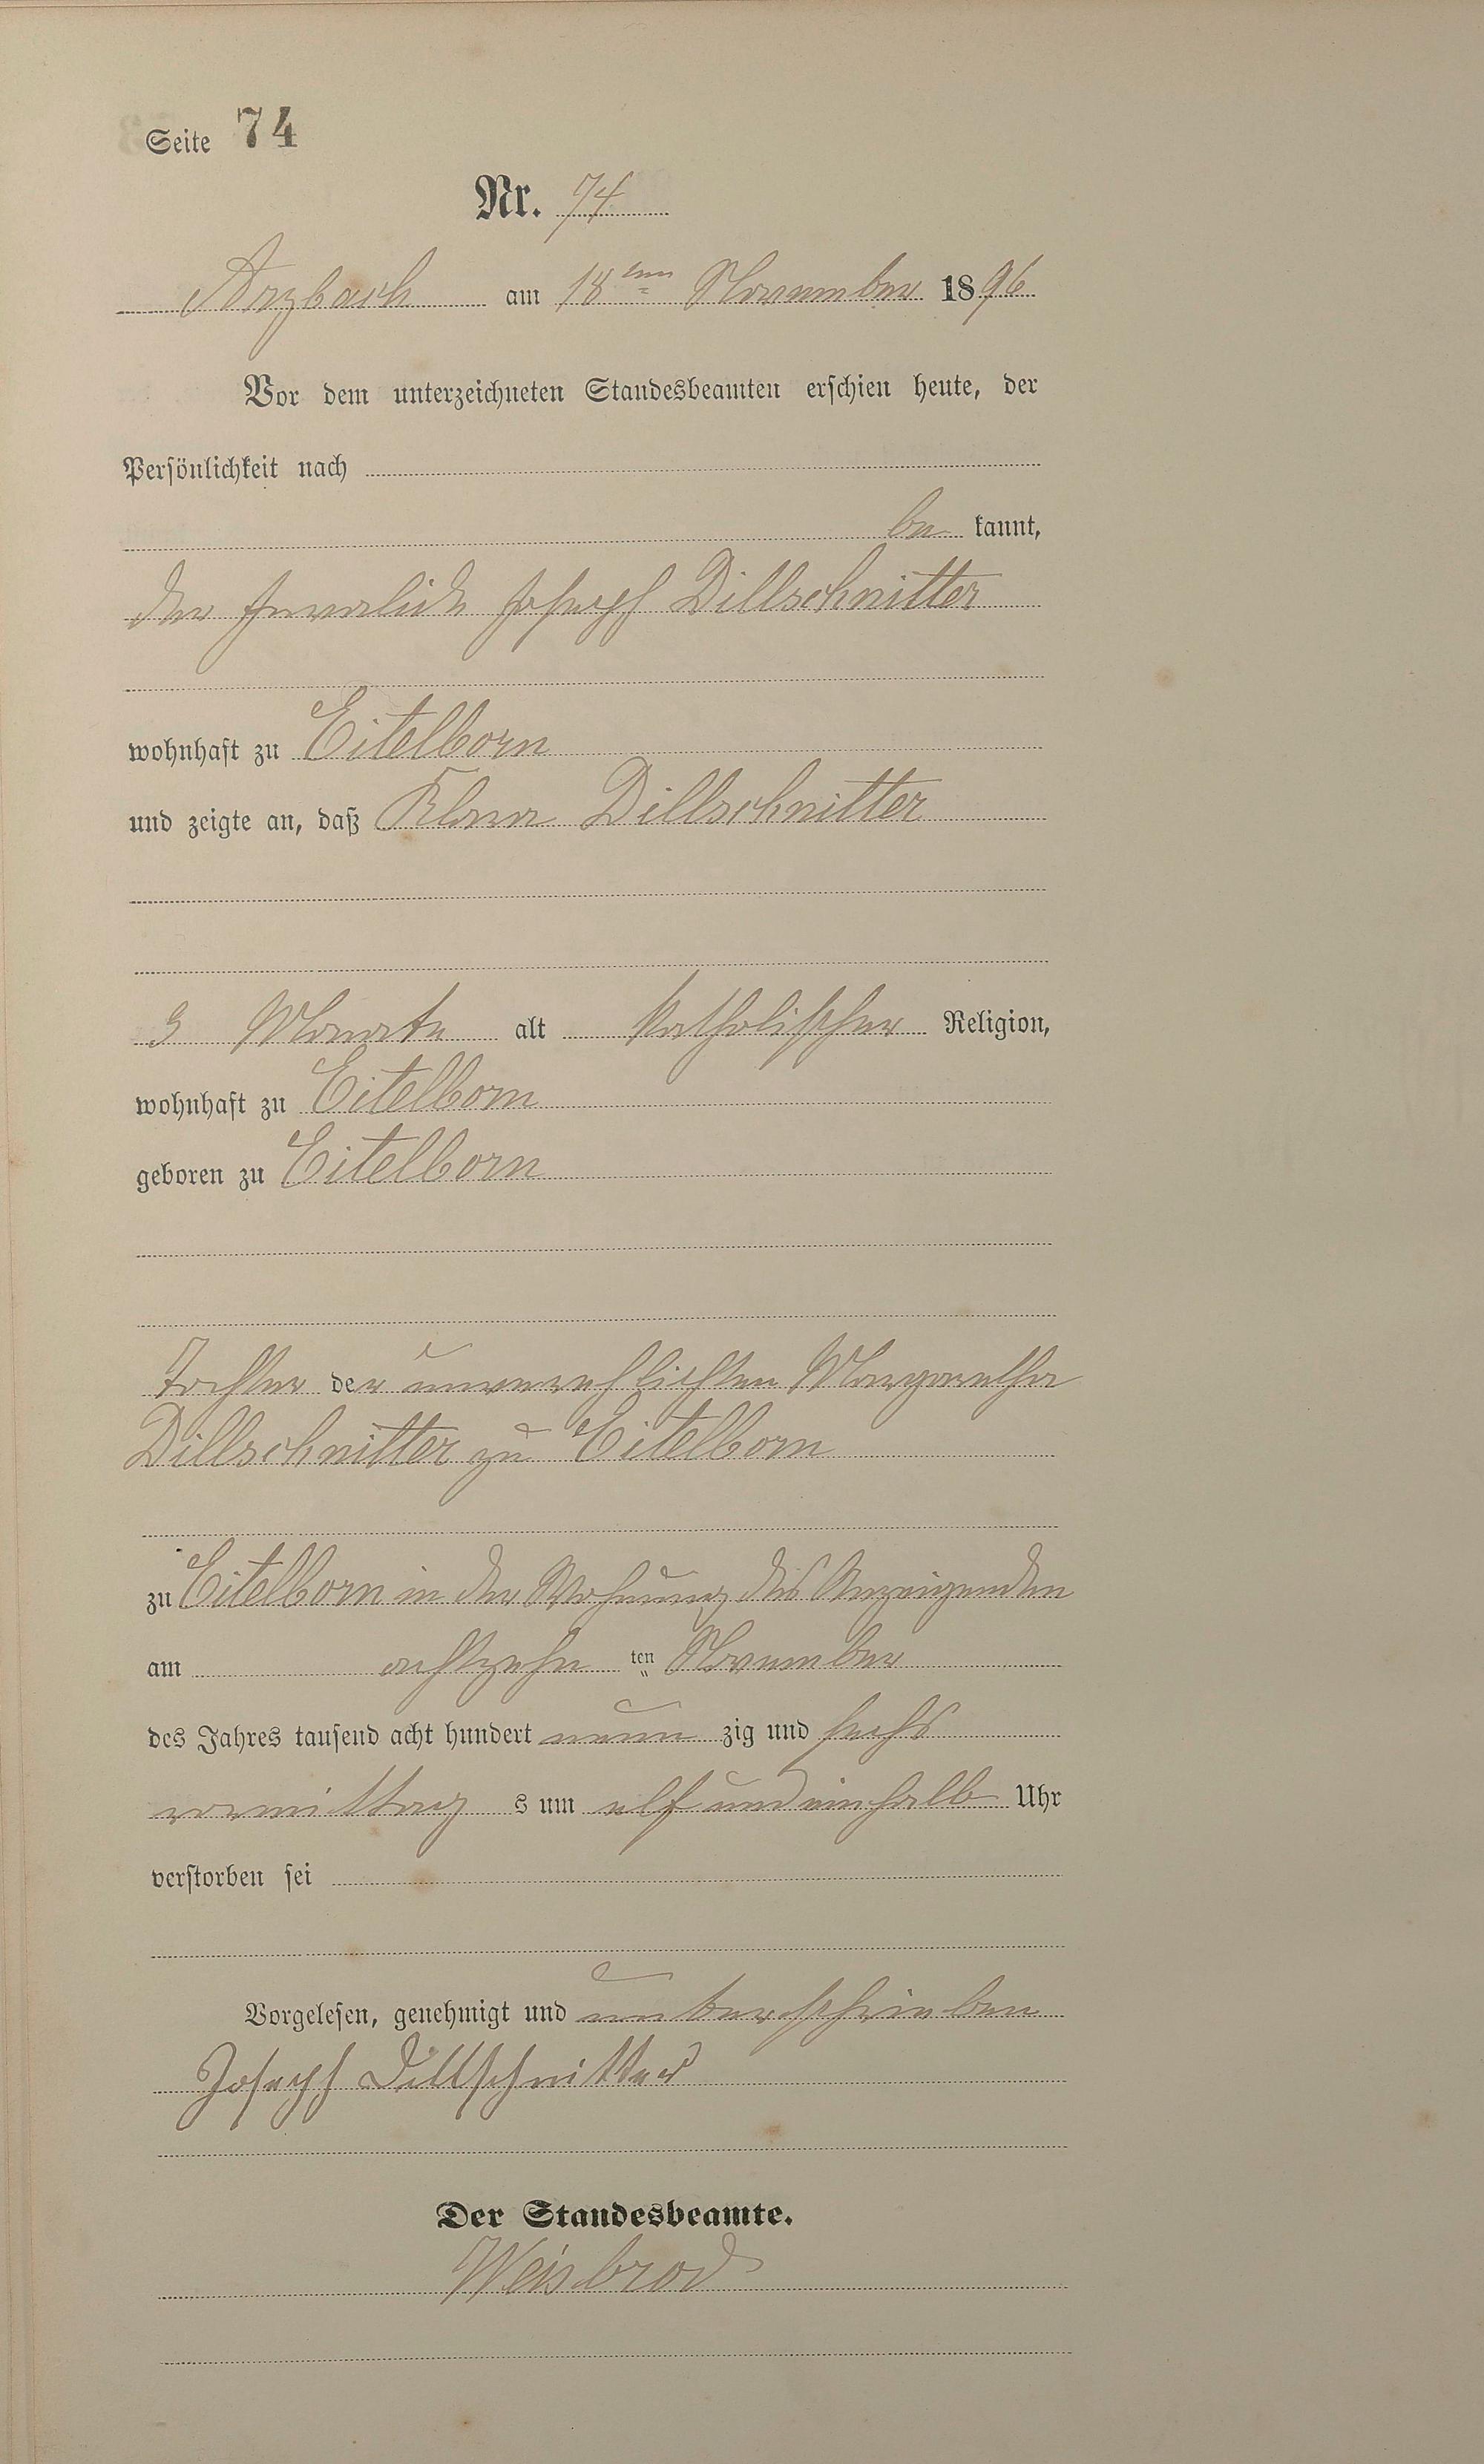 Seite 74
Nr. 74
Arzbach am 18ten November 1896
Vor dem unterzeichneten Standesbeamten erschien heute, der
Persönlichkeit nach
be kannt,
der Invalide Joseph Dillschnitter
wohnhaft zu Eitelborn
und zeigte an, daß Klara Dillschnitter
3 Monate alt katholischer Religion,
wohnhaft zu Eitelborn
geboren zu Eitelborn
Tochter der unverehlichten Margaretha
Dillschnitter zu Eitelborn
zu Eitelborn in der Wohnung des Anzeigenden
am achtzehn ten November
des Jahres tausend acht hundert neun zig und sechs
vormittag s um elf und ein halb Uhr
verstorben sei
Vorgelesen, genehmigt und unterschrieben
Joseph Dillschnitter
Der Standesbeamte.
Weisbrod